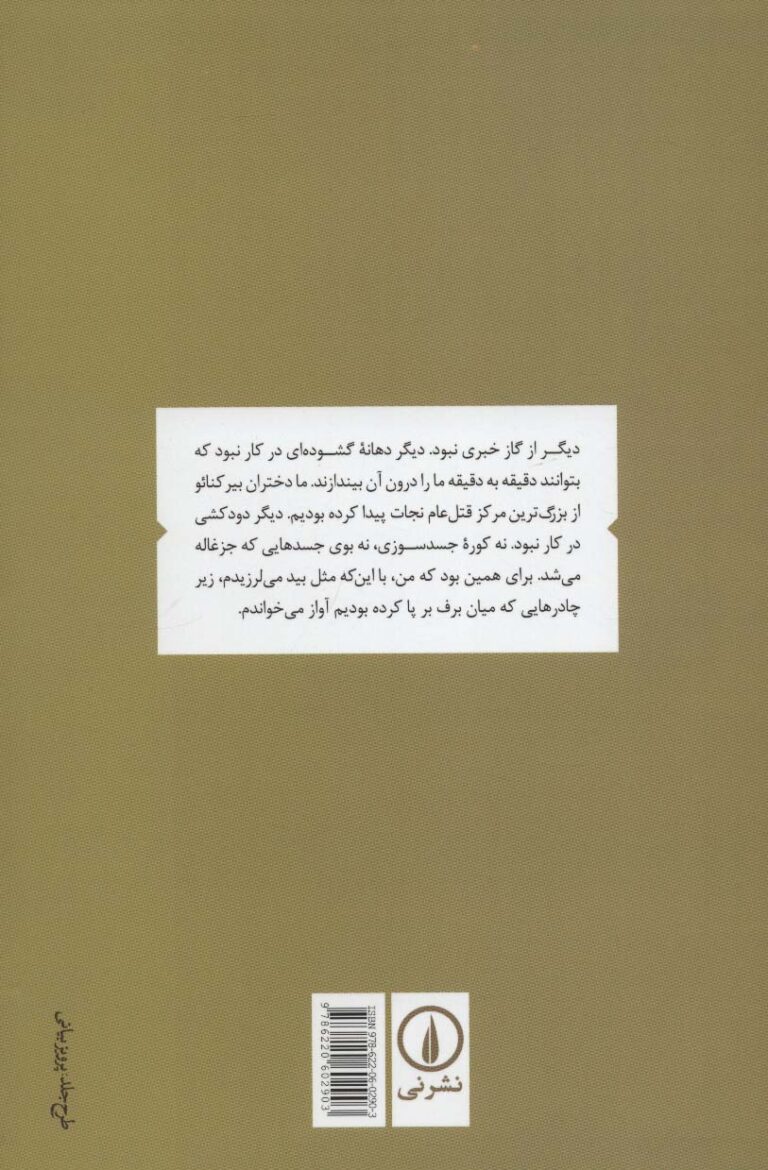 دیگر از گاز خبری نبود. دیگر دهانهٔ گشوده‌ای در کار نبود که
بتوانند دقیقه به دقیقه ما را درون آن بیندازند. ما دختران بیرکنائو
از بزرگ‌ترین مرکز قتل‌عام نجات پیدا کرده بودیم. دیگر دودکشی
در کار نبود. نه کورهٔ جسدسوزی، نه بوی جسدهایی که جزغاله
می‌شد. برای همین بود که من، با این‌که مثل بید می‌لرزیدم، زیر
چادرهایی که میان برف بر پا کرده بودیم آواز می‌خواندم.
طرح جلد: پرویز بیانی
ISBN 978-622-06-0290-3
9 786220 602903
نشر نی